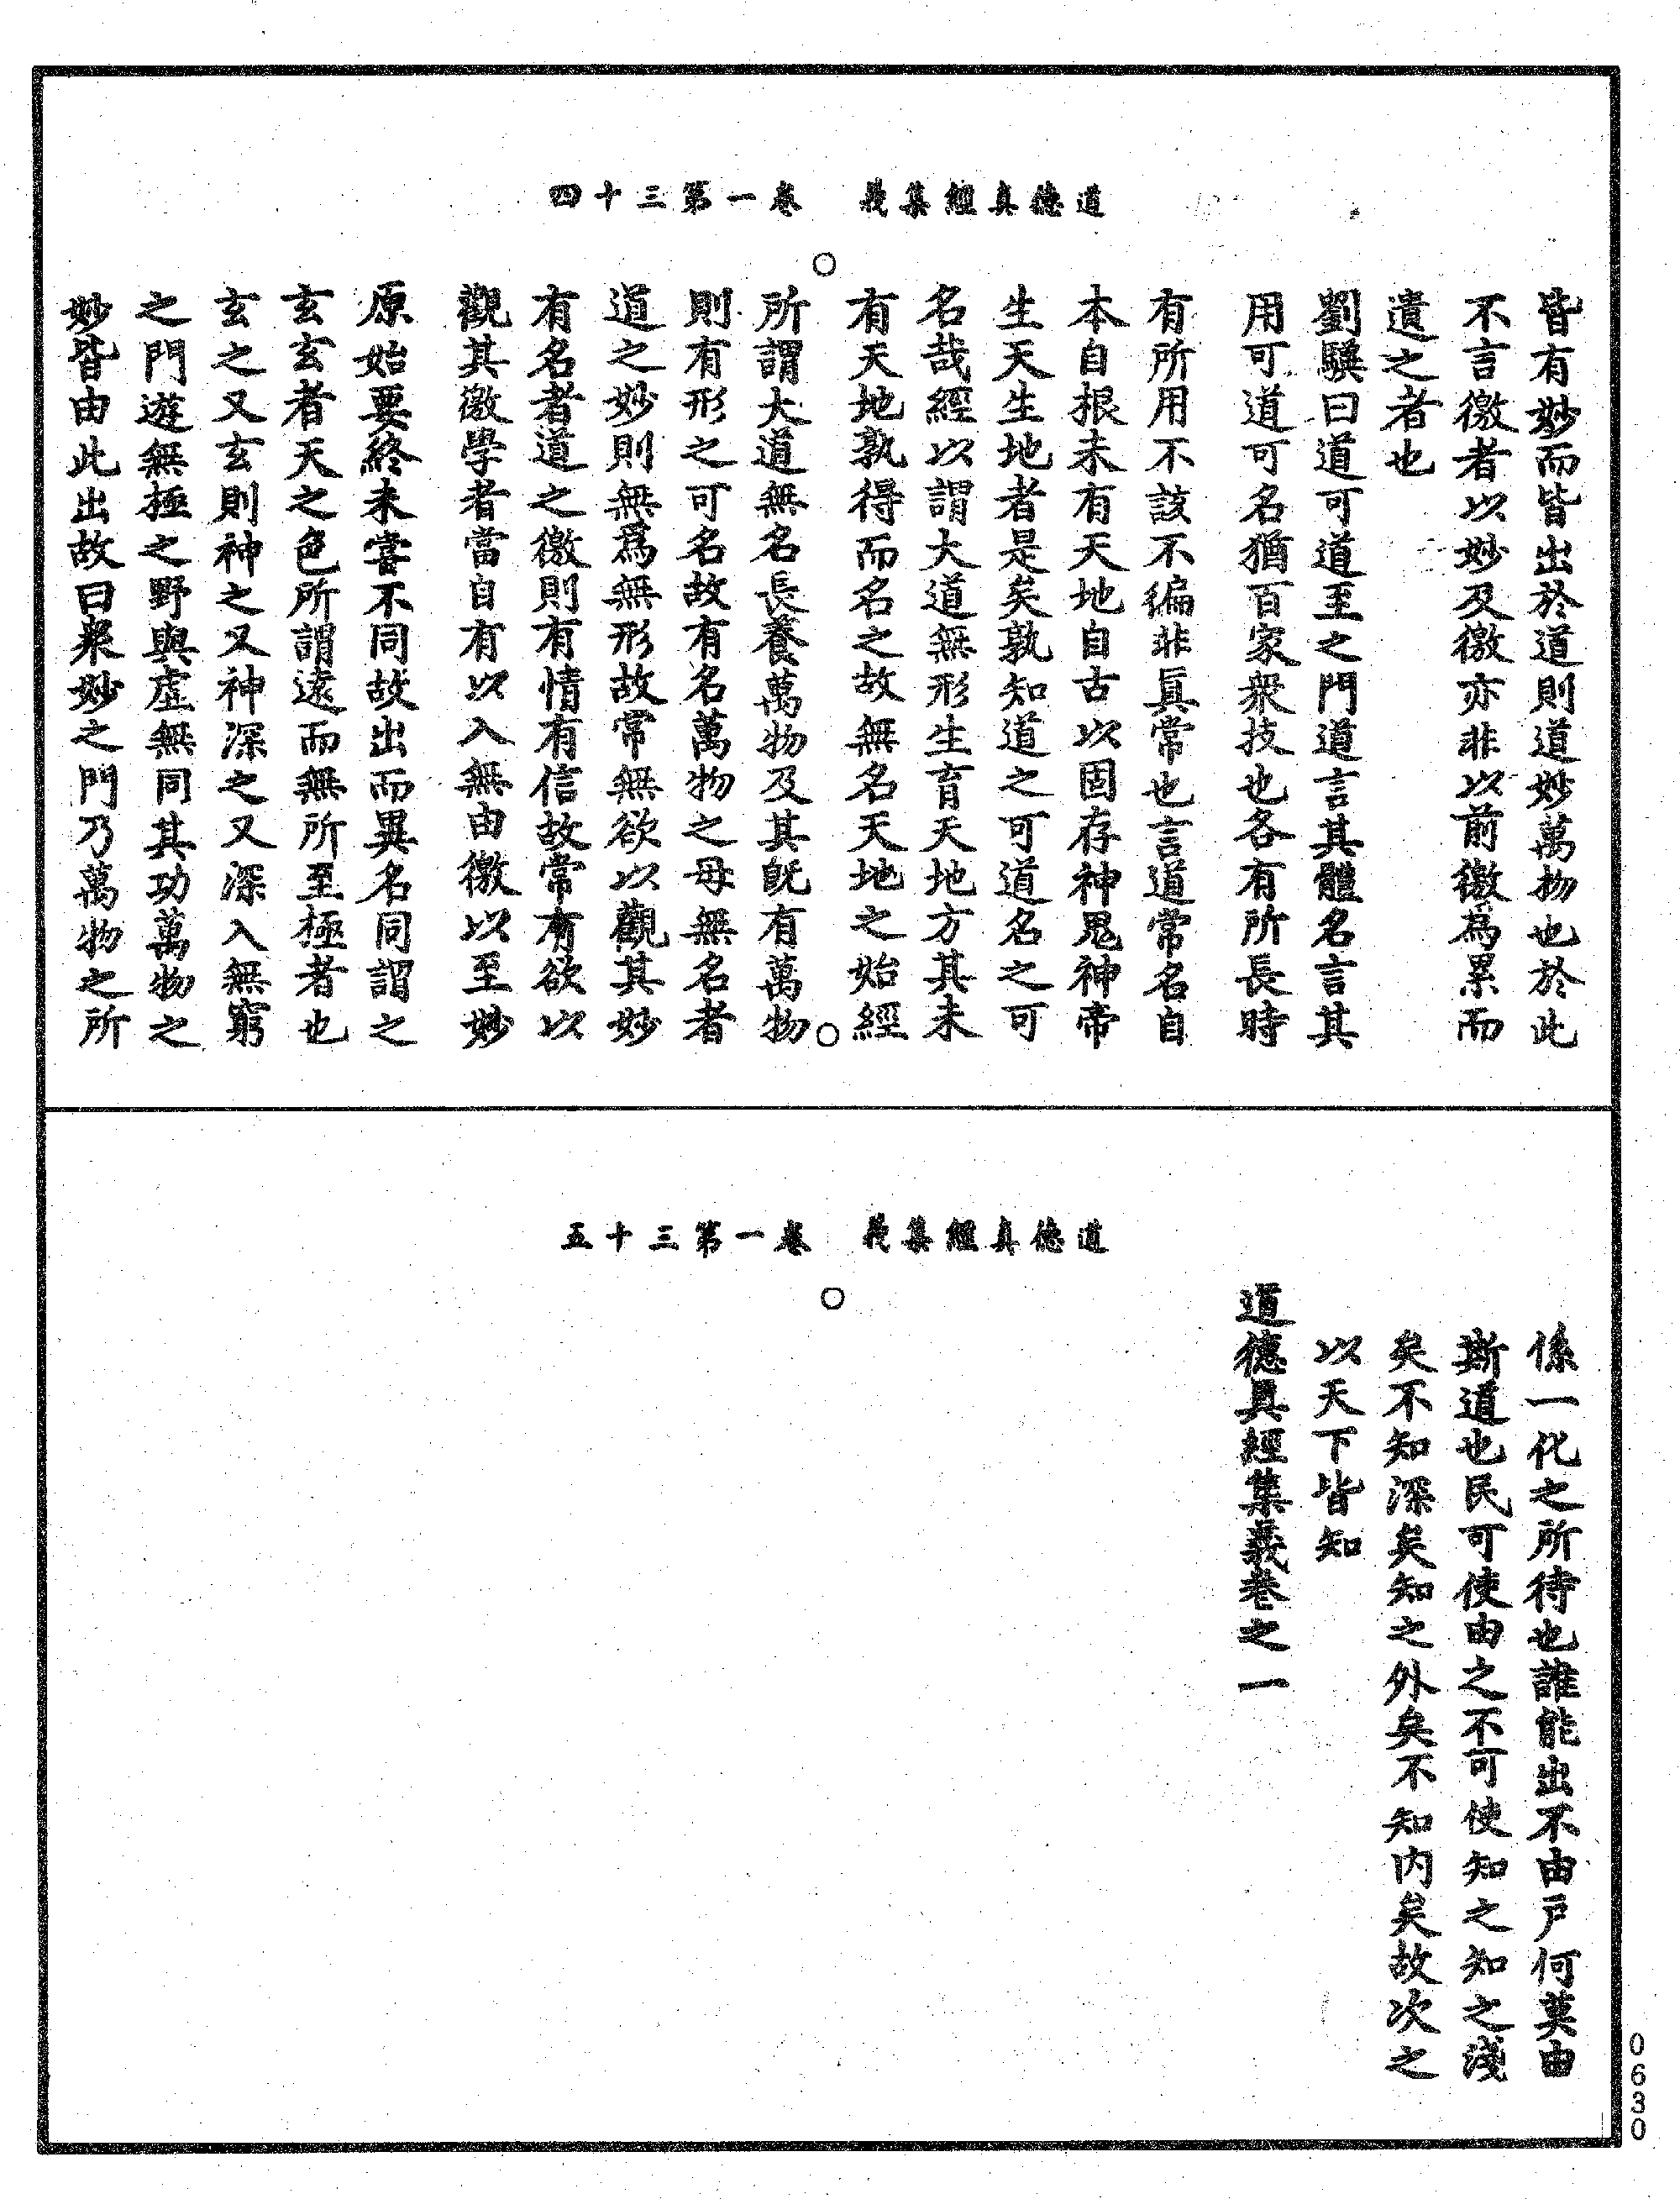 道德真經集義　卷一第三十四
皆有妙而皆出於道則道妙萬物也於此
不言徼者以妙及徼亦非以前徼為累而
遺之者也
劉驥曰道可道至之門道言其體名言其
用可道可名猶百家衆技也各有所長時
有所用不該不徧非真常也言道常名自
本自根未有天地自古以固存神鬼神帝
生天生地者是矣孰知道之可道名之可
名哉經以謂大道無形生育天地方其未
有天地孰得而名之故無名天地之始經
所謂大道無名長養萬物及其旣有萬物
則有形之可名故有名萬物之母無名者
道之妙則無爲無形故常無欲以觀其妙
有名者道之徼則有情有信故常有欲以
觀其徼學者當自有以入無由徼以至妙
原始要終未嘗不同故出而異名同謂之
玄玄者天之色所謂遠而無所至極者也
玄之又玄則神之又神深之又深入無窮
之門遊無極之野與虛無同其功萬物之
妙皆由此出故曰衆妙之門乃萬物之所
道德真經集義　卷一第三十五
係一化之所待也誰能出不由戶何莫由
斯道也民可使由之不可使知之知之淺
矣不知深矣知之外矣不知内矣故次之
以天下皆知
道德真經集義卷之一
0630